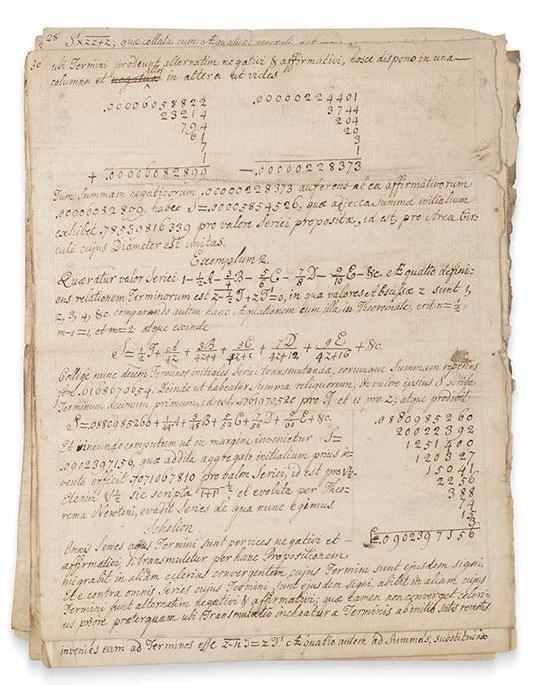 28 S'×zz+z; quæ collata cum Æquatione generali dat
30 ubi Termini prodeunt alternatim negativi & affirmativi, hosce dispono in una
columna et illos in altera ut vides
.00006058822 .00000224401
23214 3744
794 204
61 20
7 3
1 1
+ .00006082899 — .00000228373
Tum Summam negativorum .00000228373 auferens ab ea affirmativorum
.00006082899, habeo S = .00005854526, quæ adjecta Summæ initialium
exhibet .78539816339 pro valore Seriei propositæ, id est, pro Area Cir-
culi cujus Diameter est unitas.
Exemplum 2.
Quæratur valor Seriei 1 - ½A - ¾B - ⅚C - ⅞D - 9/10 E - &c. Æquatio defini-
ens relationem Terminorum est z-½T + zT' = 0, in qua valores Abscissæ z sunt 1,
2, 3, 4, &c. comparando autem hanc Æquationem cum illa in Theoremate, erit n=½,
m-1=1, et m=2 atque exinde
S = ½T + A/4z + 3B/4z+4 + 5C/4z+8 + 7D/4z+12 + 9E/4z+16 + &c
Collige nunc decem Terminos initiales Seriei transmutandæ, eorumque Summam reperies
.6168670054. Deinde ut habeatur Summa reliquorum, in valore ipsius S scribe
Terminum decimum primum, id est .1761970520 pro T et 11 pro z; atque prodibit
S = .0880985260 + 1/44 A + 3/48 B + 5/52 C + 7/56 D + 9/60 E + &c.
.0880985260
20022392
1251400
120327
15041
2256
388
74
15
3
.0902397156
Et ineundo computum ut in margine invenietur S =
.0902397156, quæ addita aggregato initialium prius in-
vento efficit .7071067810 pro valore Seriei, id est pro √½.
Etenim √½ sic scripta 1+1 -½ et evoluta per Theo-
rema Newtoni, evadit Series de qua nunc egimus
Scholion
Omnis Series cujus Termini sunt per vices negativi et
affirmativi, si transmutetur per hanc Propositionem
migrabit in aliam celerius convergentem, cujus Termini sunt ejusdem signi.
Et e contra omnis Series cujus Termini sunt ejusdem signi, abibit in aliam cujus
Termini sunt alternatim negativi & affirmativi; quæ tamen non converget celeri-
us priore præterquam ubi Transmutatio inchoatur a Terminis ab initio satis remotis
invenies eam ad Terminos esse z-n T = z T' Æquatio autem ad Summas, substituendo